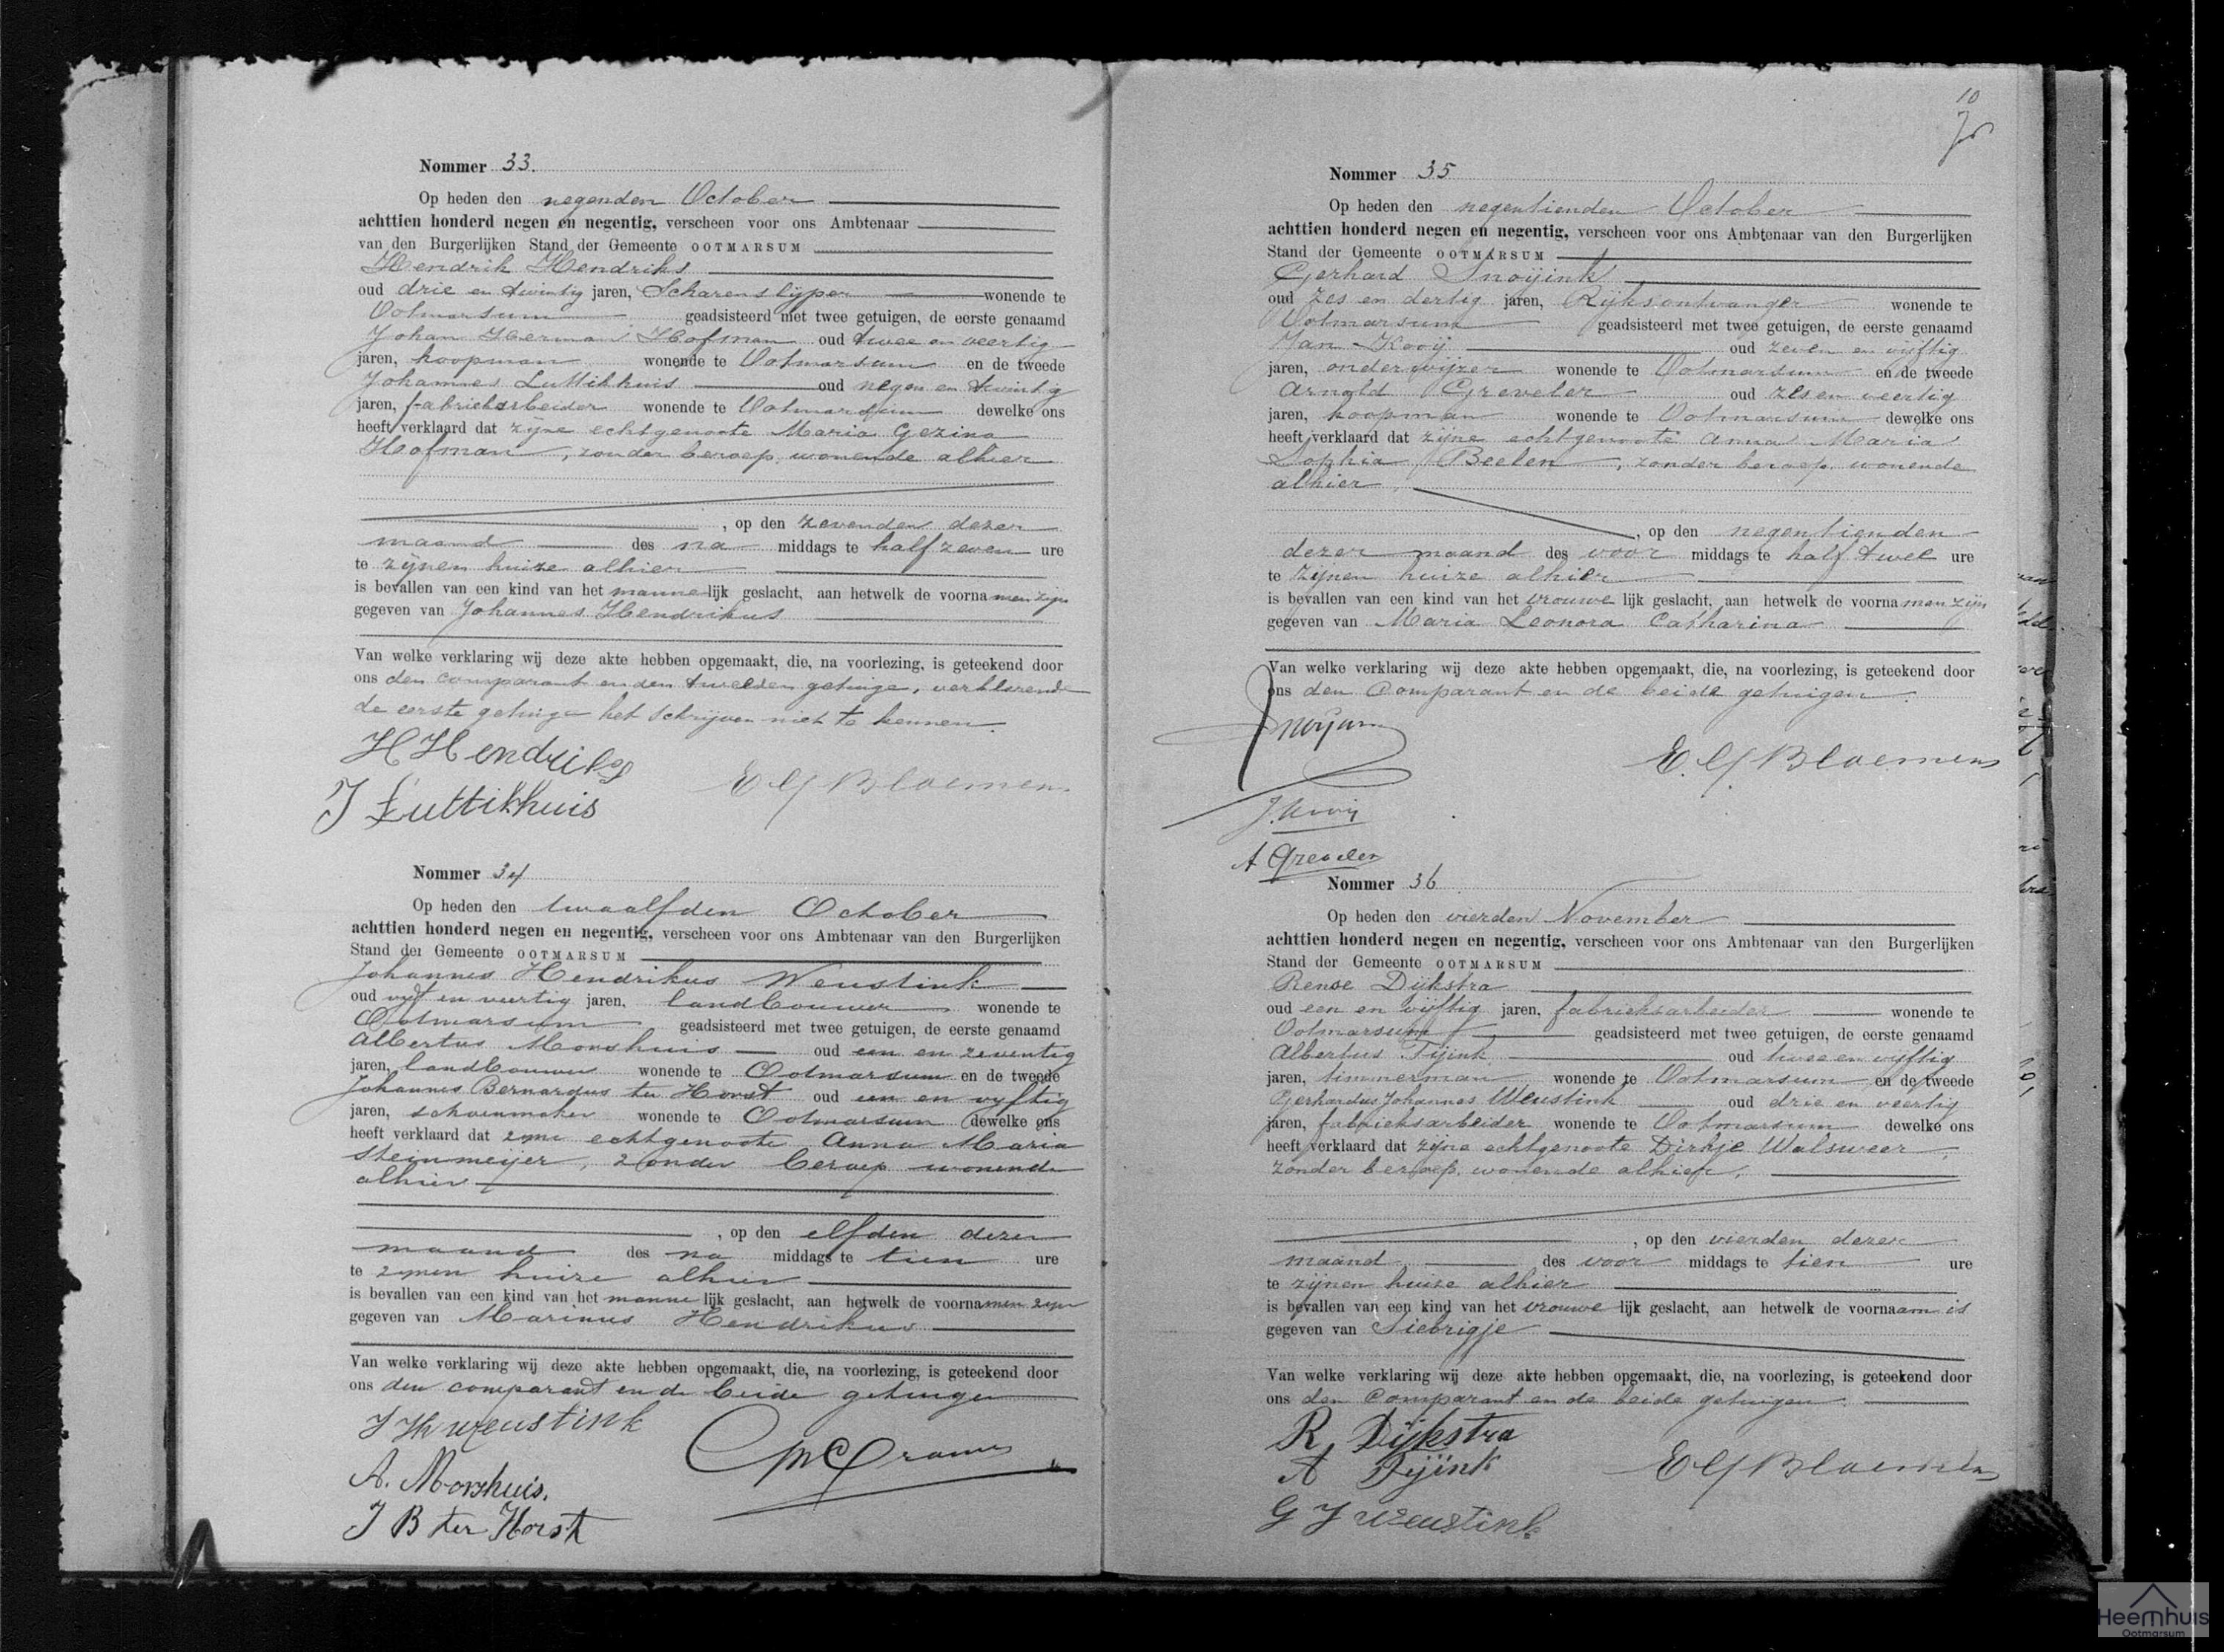 Nommer 33.
Op heden den negenden October
achttien honderd negen en negentig, verscheen voor ons Ambtenaar
van den Burgerlijken Stand der Gemeente OOTMARSUM
Hendrik Hendriks
oud drie en twintig jaren, Scharenslijper wonende te
Ootmarsum geadsisteerd met twee getuigen, de eerste genaamd
Johan Herman Hofman oud twee en veertig
jaren, koopman wonende te Ootmarsum en de tweede
Johannes Luttikhuis oud negen en twintig
jaren, fabrieksarbeider wonende te Ootmarsum dewelke ons
heeft verklaard dat zijne echtgenoote Maria Gezina
Hofman, zonder beroep, wonende alhier
, op den zevenden dezer
maand des na middags te half zeven ure
te zijnen huize alhier
is bevallen van een kind van het mannelijk geslacht, aan hetwelk de voornamen zijn
gegeven van Johannes Hendrikus
Van welke verklaring wij deze akte hebben opgemaakt, die, na voorlezing, is geteekend door
ons den comparant en den tweeden getuige, verklarende
de eerste getuige het schrijven niet te kennen.
H Hendriks
J Luttikhuis
E G Bloemen
Nommer 34
Op heden den twaalfden October
achttien honderd negen en negentig, verscheen voor ons Ambtenaar van den Burgerlijken
Stand der Gemeente OOTMARSUM
Johannes Hendrikus Weustink
oud vijf en veertig jaren, landbouwer wonende te
Ootmarsum geadsisteerd met twee getuigen, de eerste genaamd
Albertus Morshuis oud een en zeventig
jaren, landbouwer wonende te Ootmarsum en de tweede
Johannes Bernardus ter Horst oud een en vyftig
jaren, schoenmaker wonende te Ootmarsum dewelke ons
heeft verklaard dat zyne echtgenoote Anna Maria
Steinmeijer, zonder beroep wonende
alhier
, op den elfden dezer
maand des na middags te tien ure
te zynen huize alhier
is bevallen van een kind van het mannelijk geslacht, aan hetwelk de voornamen zyn
gegeven van Marinus Hendrikus
Van welke verklaring wij deze akte hebben opgemaakt, die, na voorlezing, is geteekend door
ons den comparant en de beide getuigen
J H Weustink
A. Morshuis.
J B ter Horst
10
Nommer 35
Op heden den negentienden October
achttien honderd negen en negentig, verscheen voor ons Ambtenaar van den Burgerlijken
Stand der Gemeente OOTMARSUM
Gerhard Snoijink
oud zes en dertig jaren, Rijksontvanger wonende te
Ootmarsum geadsisteerd met twee getuigen, de eerste genaamd
Jan Kooij oud zeven en vijftig
jaren, onderwijzer wonende te Ootmarsum en de tweede
Arnold Greveler oud zes en veertig
jaren, koopman wonende te Ootmarsum dewelke ons
heeft verklaard dat zijne echtgenoote Anna Maria
Sophia Beelen, zonder beroep, wonende
alhier,
, op den negentienden
dezer maand des voor middags te half twee ure
te zijnen huize alhier
is bevallen van een kind van het vrouwelijk geslacht, aan hetwelk de voornamen zijn
gegeven van Maria Leonora Catharina
Van welke verklaring wij deze akte hebben opgemaakt, die, na voorlezing, is geteekend door
ons den Comparant en de beide getuigen.
E. G Bloemen
J. Kooij
A Greveler
Nommer 36
Op heden den vierden November
achttien honderd negen en negentig, verscheen voor ons Ambtenaar van den Burgerlijken
Stand der Gemeente OOTMARSUM
Rense Dijkstra
oud een en vijftig jaren, fabrieksarbeider wonende te
Ootmarsum geadsisteerd met twee getuigen, de eerste genaamd
Albertus Tijink oud twee en vyftig
jaren, timmerman wonende te Ootmarsum en de tweede
Gerhardus Johannes Weustink oud drie en veertig
jaren, fabrieksarbeider wonende te Ootmarsum dewelke ons
heeft verklaard dat zijne echtgenoote Dirkje Walsweer,
zonder beroep, wonende alhier,
, op den vierden dezer
maand des voor middags te tien ure
te zijnen huize alhier
is bevallen van een kind van het vrouwelijk geslacht, aan hetwelk de voornaam is
gegeven van Siebrigje
Van welke verklaring wij deze akte hebben opgemaakt, die, na voorlezing, is geteekend door
ons den Comparant en de beide getuigen.
R Dijkstra
A Tijink
E G Bloemen
G J Weustink
Heemhuis
Ootmarsum